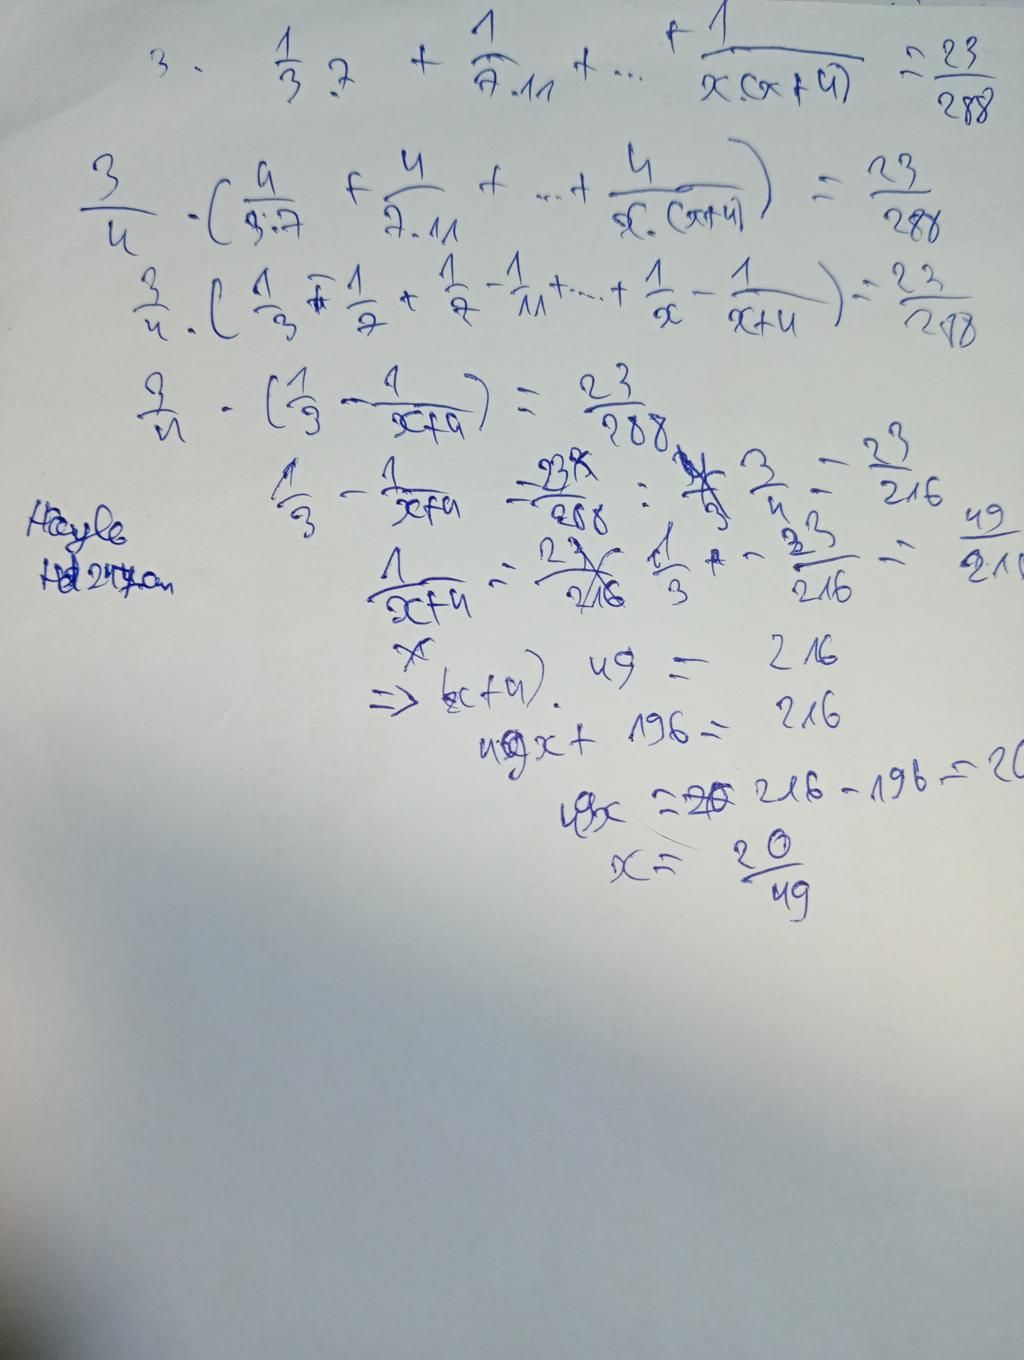 3. 1/3.7 + 1/7.11 + ... + 1/x.(x+4) = 23/288
3/4 . (4/3.7 + 4/7.11 + ... + 4/x.(x+4)) = 23/288
3/4 . (1/3 - 1/7 + 1/7 - 1/11 + ... + 1/x - 1/x+4) = 23/288
3/4 . (1/3 - 1/x+4) = 23/288
1/3 - 1/x+4 = 23/288 : 3/4 = 23/216
1/x+4 = 1/3 - 23/216 = 49/216
=> (x+4). 49 = 216
49x + 196 = 216
49x = 216 - 196 = 20
x = 20/49